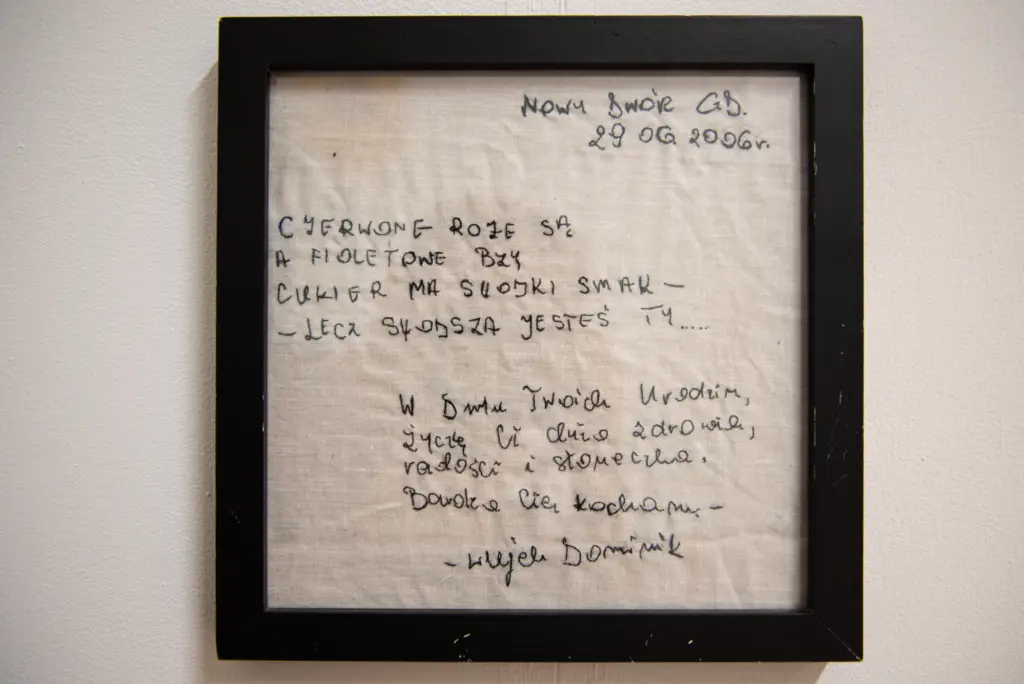 NOWY DWÓR GD.
29 06 2006r.
CZERWONE RÓŻE SĄ
A FIOLETOWE BZY
CUKIER MA SŁODKI SMAK –
– LECZ SŁODSZA JESTEŚ TY.....
W Dniu Twoich Urodzin,
życzę Ci dużo zdrowia,
radości i słoneczka.
Bardzo Cię kochamy –
– wujek Dominik